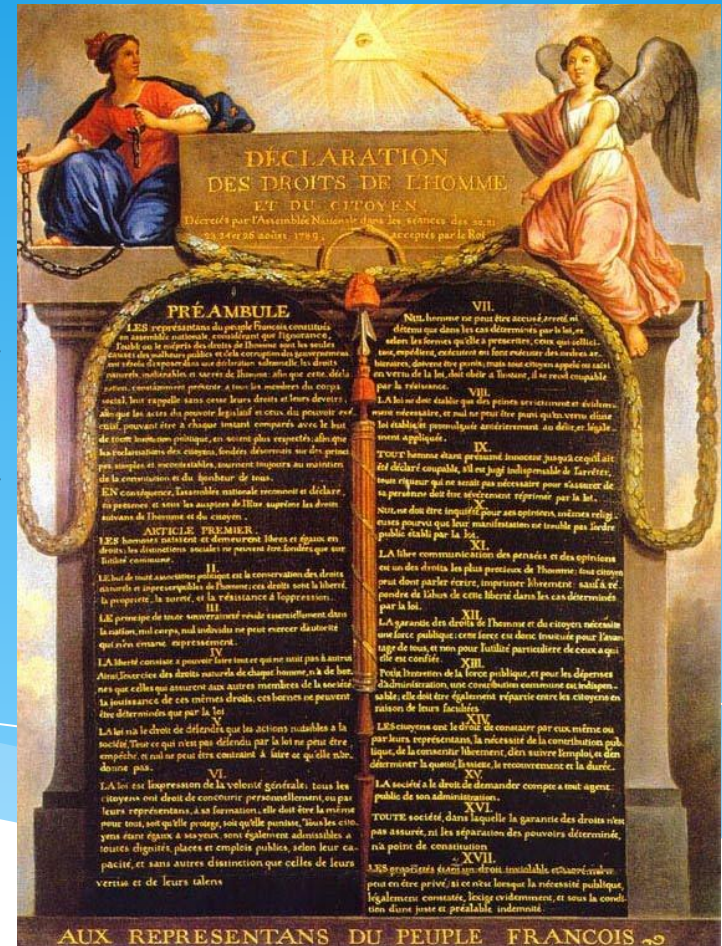 DÉCLARATION
DES DROITS DE L'HOMME
ET DU CITOYEN
Décretés par l'Assemblée Nationale dans les séances des 20, 21
23, 24 et 26 août 1789, acceptés par le Roi
PRÉAMBULE
LES représentans du peuple Francois, constitués
en assemblée nationale, considérant que l'ignorance,
l'oubli ou le mépris des droits de l'homme sont les seules
causes des malheurs publics et de la corruption des gouvernemens
ont résolu d'exposer dans une déclaration solemnelle, les droits
naturels, inaliénables et sacrés de l'homme: afin que cette décla
ration, constamment présente a tous les membres du corps
social, leur rappelle sans cesse leurs droits et leurs devoirs
afin que les actes du pouvoir legislatif et ceux du pouvoir exé
cutif, pouvant être à chaque instant comparés avec le but
de toute institution politique, en soient plus respectés; afin que
les réclamations des citoyens, fondées désormais sur des princi
pes simples et incontestables, tournent toujours au maintien
de la constitution et du bonheur de tous.
EN conséquence, l'assemblée nationale reconnoit et déclare
en présence et sous les auspices de l'Etre suprême les droits
suivans de l'homme et du citoyen.
ARTICLE PREMIER.
LES hommes naissent et demeurent libres et égaux en
droits; les distinctions sociales ne peuvent être fondées que sur
l'utilité commune.
II.
LE but de toute association politique est la conservation des droits
naturels et imprescriptibles de l'homme; ces droits sont la liberté,
la propriété, la sureté, et la résistance à l'oppression.
III.
LE principe de toute souveraineté réside essentiellement dans
la nation, nul corps, nul individu ne peut exercer d'autorité
qui n'en émane expressement.
IV
LA liberté consiste a pouvoir faire tout ce qui ne nuit pas à autrui
Ainsi, l'exercice des droits naturels de chaque homme, n'a de bor
nes que celles qui assurent aux autres membres de la société
la jouissance de ces mêmes droits; ces bornes ne peuvent
être déterminées que par la loi
V.
LA loi n'a le droit de défendre que les actions nuisibles a la
société. Tout ce qui n'est pas défendu par la loi ne peut être
empêché, et nul ne peut être contraint à faire ce qu'elle n'or
donne pas.
VI.
LA loi est l'expression de la volonté générale; tous les
citoyens ont droit de concourir personnellement, ou par
leurs représentans, à sa formation; elle doit être la même
pour tous, soit qu'elle protege, soit qu'elle punisse, Tous les cito
yens étant égaux à ses yeux, sont également admissibles a
toutes dignités, places et emplois publics, selon leur ca
pacité, et sans autres distinction que celles de leurs
vertus et de leurs talens
VII.
NUL homme ne peut être accusé, arreté, ni
détenu que dans les cas déterminés par la loi, et
selon les formes qu'elle à prescrites, ceux qui sollici
tent, expédient, exécutent ou font exécuter des ordres ar
bitraires, doivent être punis; mais tout citoyen appelé ou saisi
en vertu de la loi, doit obéir a l'instant, il se rend coupable
par la résistance.
VIII.
LA loi ne doit établir que des peines strictement et évidem
ment nécessaire, et nul ne peut être puni qu'en vertu d'une
loi établie, et promulguée antérierement au délit, et légale
ment appliquée.
IX.
TOUT homme étant présumé innocent jusqu'a ce qu'il ait
été déclaré coupable, s'il est jugé indispensable de l'arrêter,
toute rigueur qui ne serait pas nécessaire pour s'assurer de
sa personne doit être sévèrement réprimée par la loi.
X.
NUL ne doit être inquiété pour ses opinions, mêmes religi
euses pourvu que leur manifestation ne trouble pas l'ordre
public établi par la loi.
XI.
LA libre communication des pensées et des opinions
est un des droits les plus precieux de l'homme; tout citoyen
peut donc parler écrire, imprimer librement: sauf à ré
pondre de l'abus de cette liberté dans les cas déterminés
par la loi.
XII.
LA garantie des droits de l'homme et du citoyen nécessite
une force publique; cette force est donc instituée pour l'avan
tage de tous, et non pour l'utilité particuliere de ceux a qui
elle est confiée.
XIII.
Pour l'entretien de la force publique, et pour les dépenses
d'administration, une contribution commune est indispen
sable; elle doit être également répartie entre les citoyens en
raison de leurs facultées
XIV.
LES citoyens ont le droit de constater par eux même ou
par leurs représentans, la nécessité de la contribution pub
lique, de la consentir librement, d'en suivre l'emploi, et d'en
déterminer la quotité, l'assiette, le recouvrement et la durée.
XV.
LA société a le droit de demander compte a tout agent
public de son administration.
XVI.
TOUTE société, dans laquelle la garantie des droits n'est
pas assurée, ni les séparation des pouvoirs déterminée,
n'a point de constitution
XVII.
LES propriétés étant un droit inviolable et sacré, nul ne
peut en être privé, si ce n'est lorsque la nécessité publique,
légalement constatée, l'exige evidemment, et sous la condi
tion d'une juste et préalable indemnité.
AUX REPRESENTANS DU PEUPLE FRANCOIS